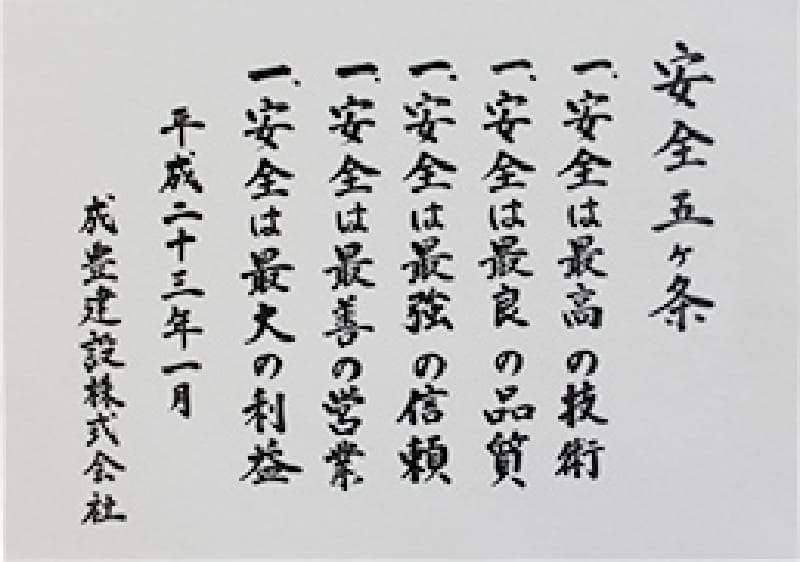 安全五ヶ条
一、安全は最高の技術
一、安全は最良の品質
一、安全は最強の信頼
一、安全は最善の営業
一、安全は最大の利益
平成二十三年一月
成豊建設株式会社